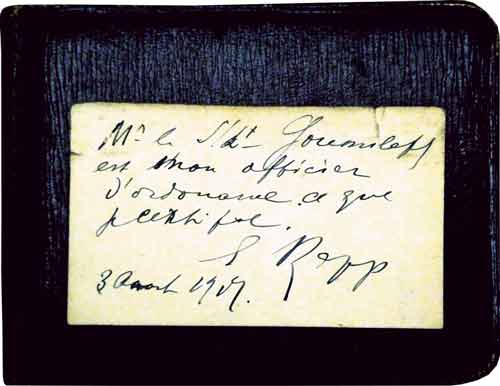 Mr le S/Lt Goumileff
est mon officier
d'ordonance ce que
je certifie.
E Rapp
3 Aout 1917.